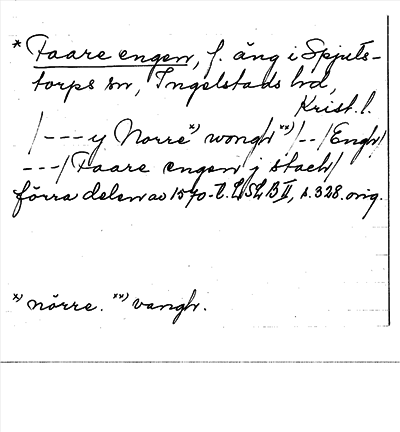 * Faare engen, f. äng i Spjuts-
torps sn, Ingelstads hd,
Krist. l.
/--- y Norre *) wongh **) /--/ Engh/
---/ Faare engen j stach/
förra delen av 1570-t. LSLB II, s. 328. orig.
*) nörre. **) vangh.